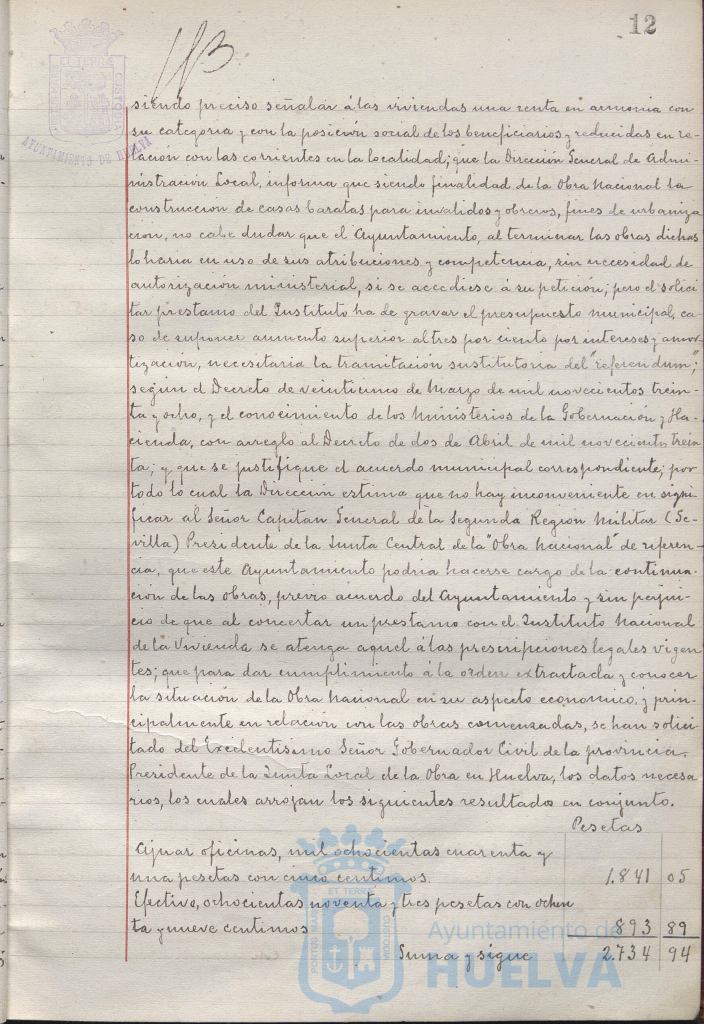 12
siendo preciso señalar á las viviendas una renta en armonia con
su categoria y con la posición social de los beneficiarios y reducidas en re-
lación con las corrientes en la localidad; que la Dirección General de Admi-
nistración Local, informa que siendo finalidad de la Obra Nacional la
construcción de casas baratas para invalidos y obreros, fines de urbaniza
ción, no cabe dudar que el Ayuntamiento, al terminar las obras dichas
lo haria en uso de sus atribuciones y competencia, sin necesidad de
autorización ministerial, si se accediese á su petición; pero el solici
tar prestamo del Instituto ha de gravar el presupuesto municipal, ca
so de suponer aumento superior al tres por ciento por intereses y amor
tización, necesitaria la tramitación sustitutoria del "referendum";
según el Decreto de veinticinco de Marzo de mil novecientos trein-
ta y ocho, y el conocimiento de los Ministerios de la Gobernación y Ha-
cienda, con arreglo al Decreto de dos de Abril de mil novecientos trein
ta; y que se justifique el acuerdo municipal correspondiente; por
todo lo cual la Dirección estima que no hay inconveniente en signi-
ficar al Señor Capitan General de la Segunda Region Militar (Se-
villa) Presidente de la Junta Central de la "Obra Nacional" de referen-
cia, que este Ayuntamiento podria hacerse cargo de la continua-
cion de las obras, previo acuerdo del Ayuntamiento y sin perjui-
cio de que al concertar un prestamo con el Instituto Nacional
de la Vivienda se atenga aquel á las prescripciones legales vigen-
tes; que para dar cumplimiento á la orden extractada y conocer
la situación de la Obra Nacional en su aspecto economico y prin-
cipalmente en relación con las obras comenzadas, se han solici
tado del Excelentisimo Señor Gobernador Civil de la provincia.
Presidente de la Junta Local de la Obra en Huelva, los datos necesa
rios, los cuales arrojan los siguientes resultados en conjunto.
Pesetas
Ajuar oficinas, mil ochocientas cuarenta y
una pesetas con cinco centimos. 1.841 05
Efectivo, ochocientas noventa y tres pesetas con ochen
ta y nueve centimos 893 89
Suma y sigue 2.734 94
AYUNTAMIENTO DE HUELVA
Ayuntamiento de
HUELVA